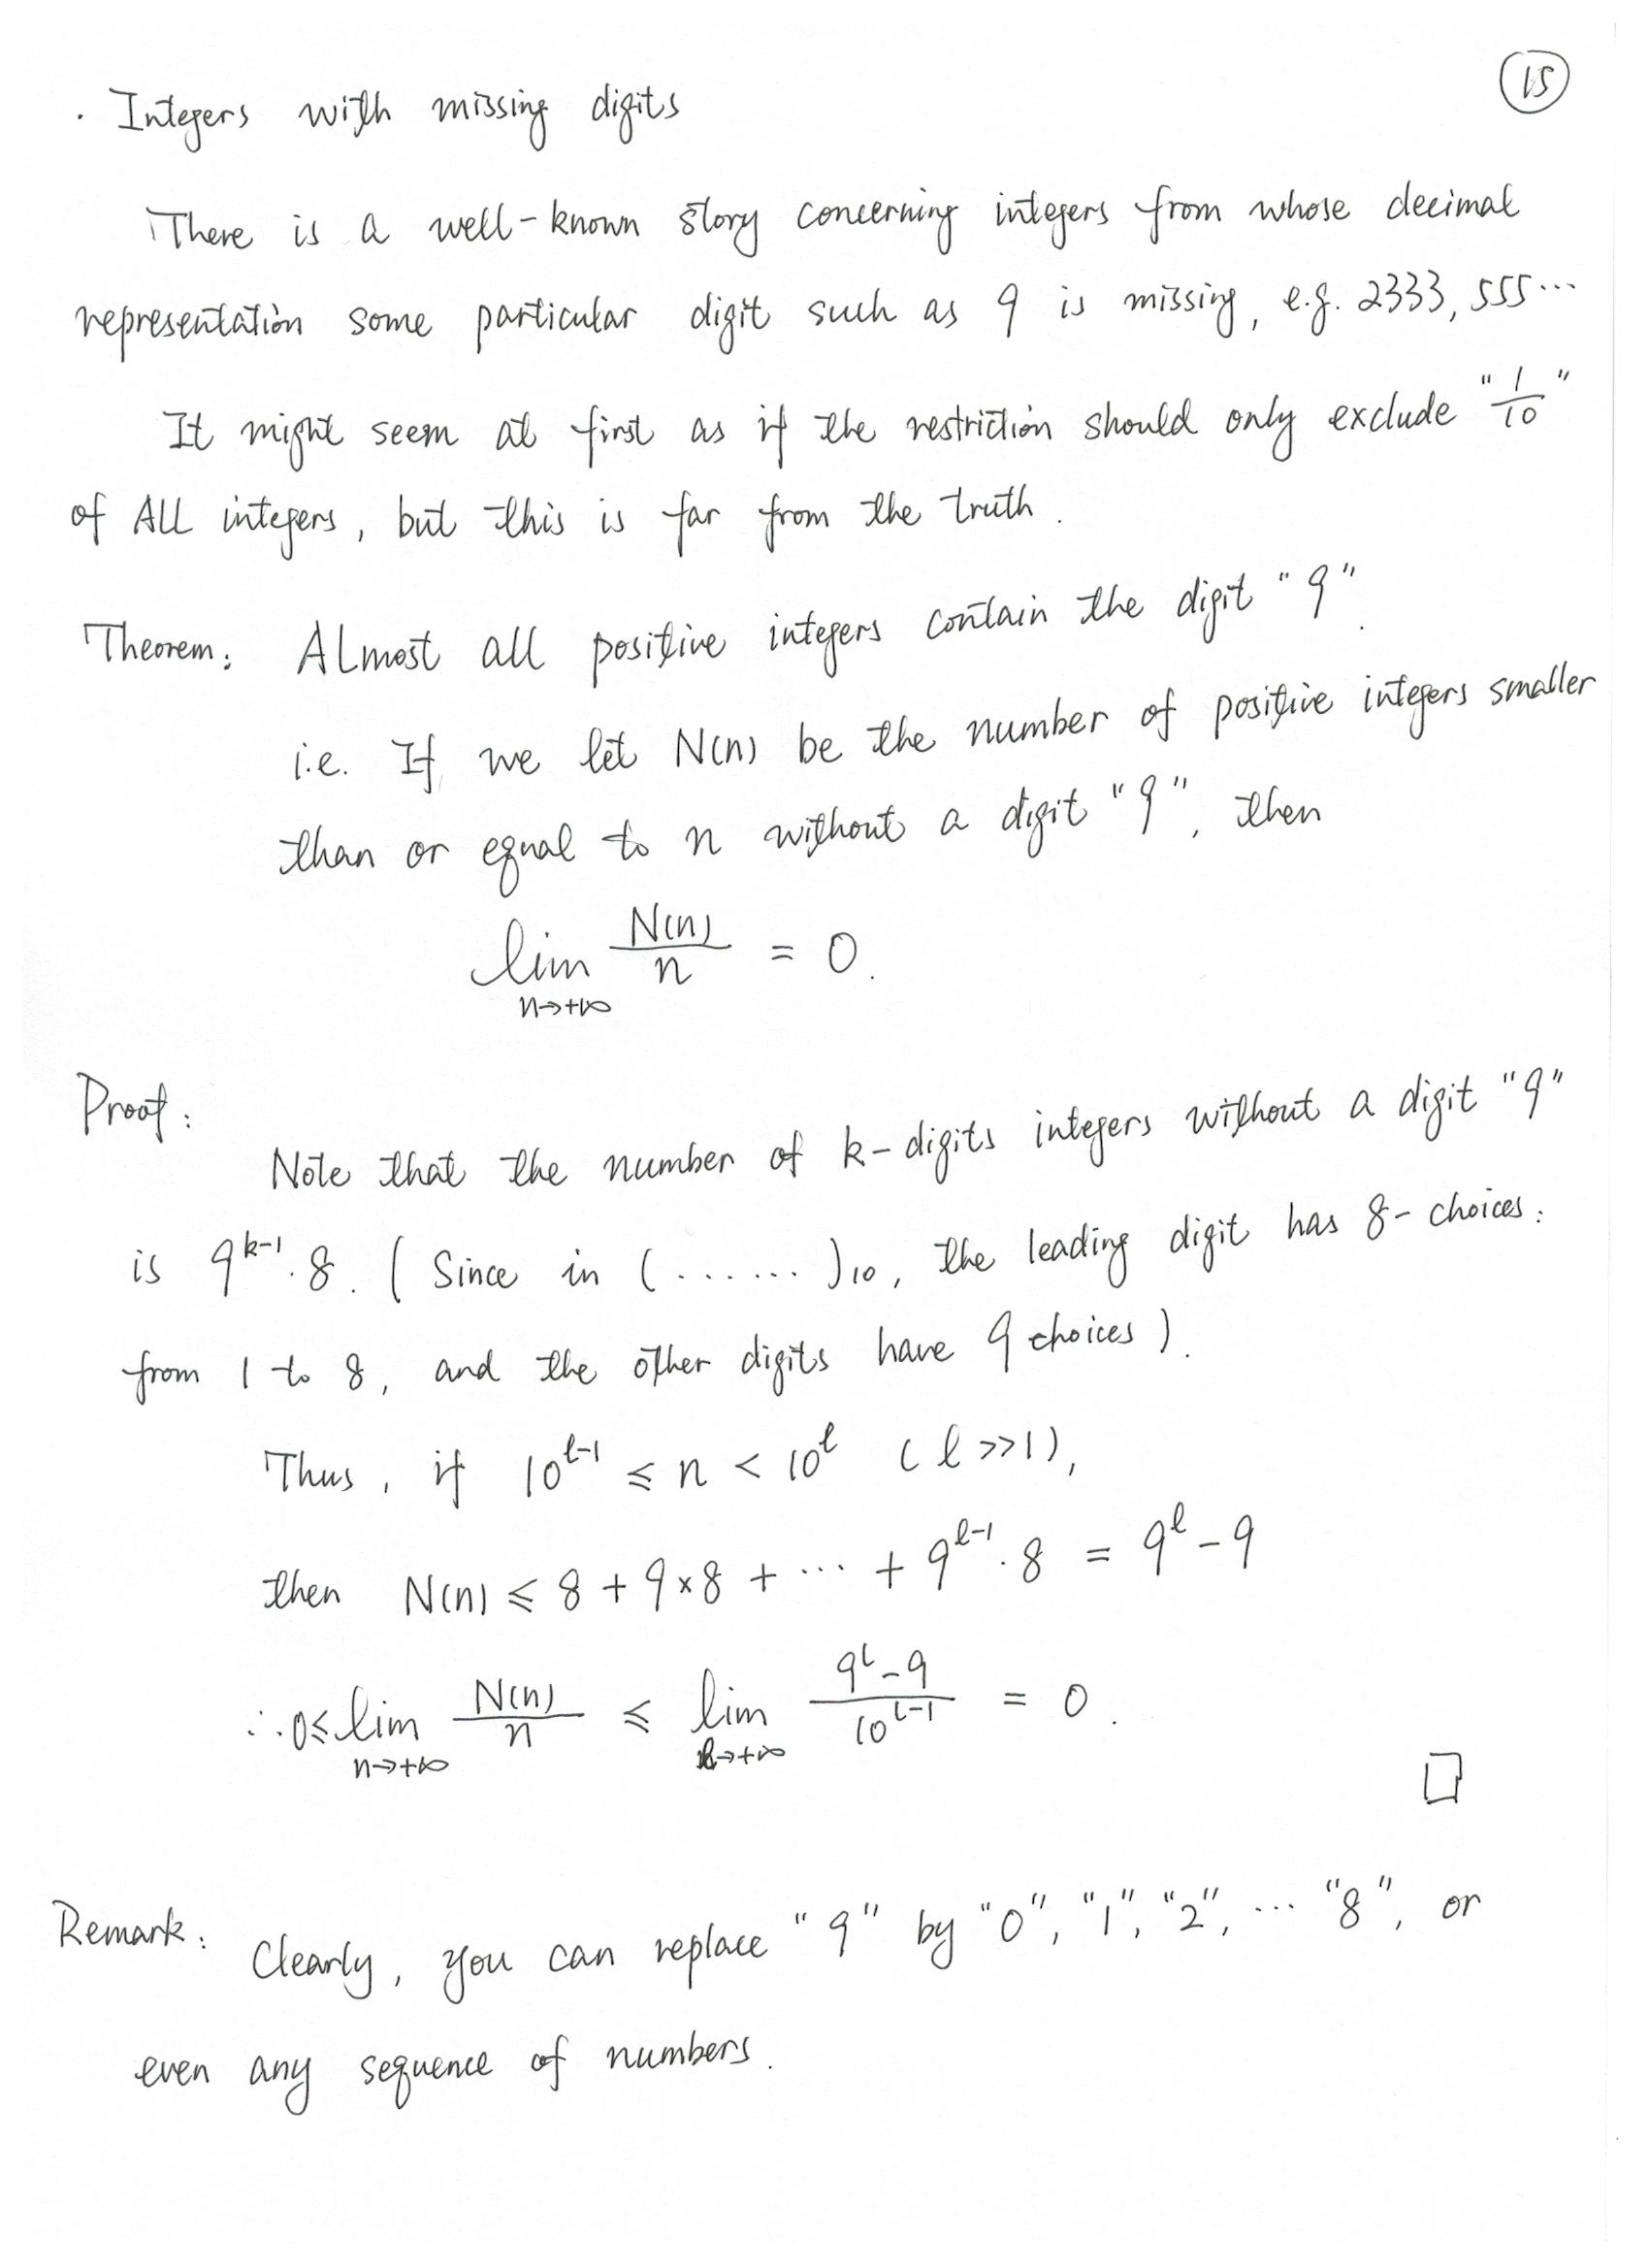 ⑮
· Integers with missing digits
There is a well-known story concerning integers from whose decimal
representation some particular digit such as 9 is missing, e.g. 2333, 555...
It might seem at first as if the restriction should only exclude "1/10"
of ALL integers, but this is far from the truth.
Theorem: Almost all positive integers contain the digit "9".
i.e. If we let N(n) be the number of positive integers smaller
than or equal to n without a digit "9", then
lim_{n→+∞} N(n)/n = 0.
Proof:
Note that the number of k-digits integers without a digit "9"
is 9^{k-1}·8. (Since in (.......)₁₀, the leading digit has 8-choices:
from 1 to 8, and the other digits have 9 choices).
Thus, if 10^{l-1} ≤ n < 10^l (l >>1),
then N(n) ≤ 8 + 9×8 + ... + 9^{l-1}·8 = 9^l - 9
∴ 0≤ lim_{n→+∞} N(n)/n ≤ lim_{l→+∞} (9^l - 9)/10^{l-1} = 0.
□
Remark: Clearly, you can replace "9" by "0", "1", "2", ... "8", or
even any sequence of numbers.